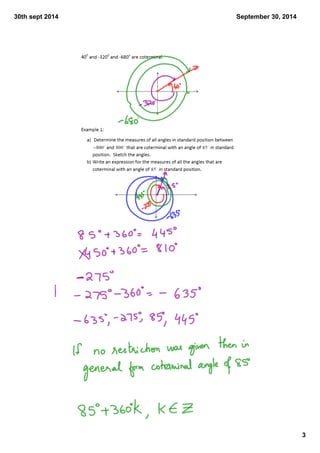 30th sept 2014
September 30, 2014
40⁰ and -320⁰ and -680⁰ are coterminal.
40°
-320
-680
Example 1:
a) Determine the measures of all angles in standard position between
and that are coterminal with an angle of in standard
position. Sketch the angles.
b) Write an expression for the measures of all the angles that are
coterminal with an angle of in standard position.
85°
445°
-275
-635
85°+360°= 445°
450°+360°= 810°
-275°
-275°-360°= - 635°
-635°, -275°, 85°, 445°
If no restriction was given then in
general form coterminal angle of 85°
85°+360°k, k∈Z
3